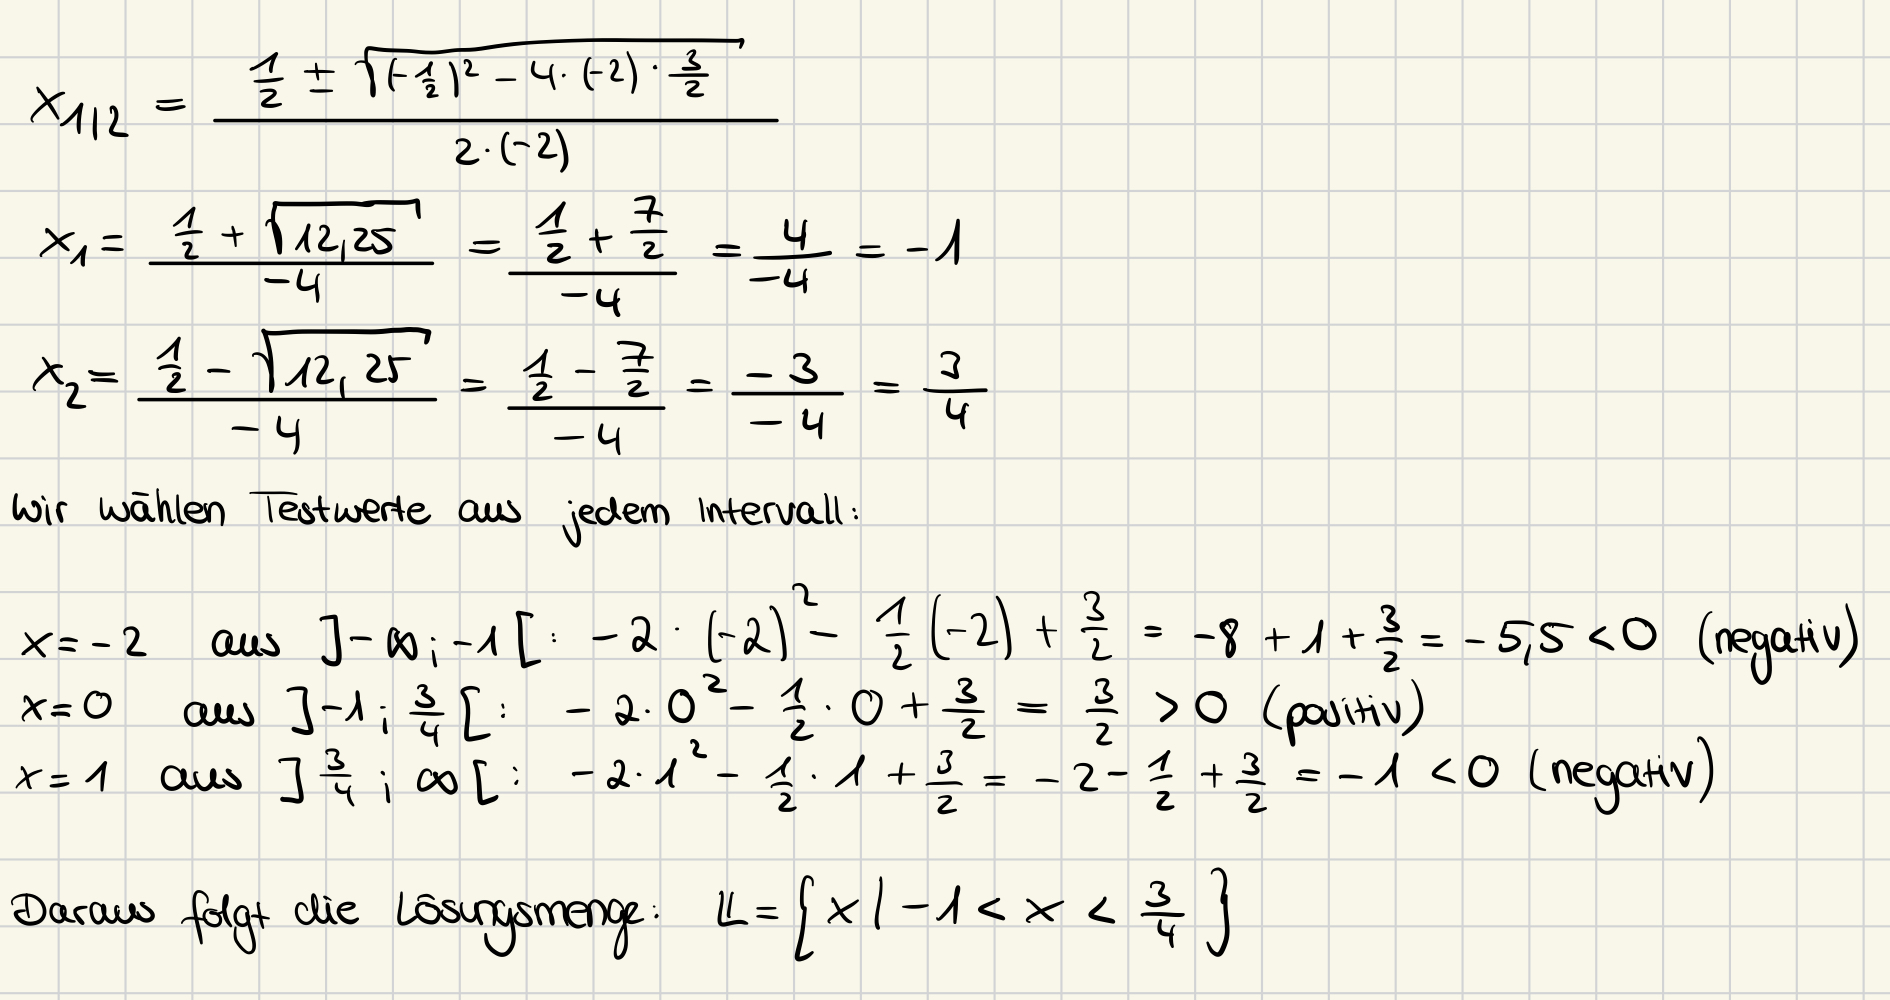 x₁|₂ = (1/2 ± √((-1/2)² - 4·(-2)·3/2)) / (2·(-2))
x₁ = (1/2 + √12,25) / -4 = (1/2 + 7/2) / -4 = 4/-4 = -1
x₂ = (1/2 - √12,25) / -4 = (1/2 - 7/2) / -4 = -3/-4 = 3/4
Wir wählen Testwerte aus jedem Intervall:
x = -2 aus ]-∞;-1[: -2·(-2)² - 1/2(-2) + 3/2 = -8 + 1 + 3/2 = -5,5 < 0 (negativ)
x = 0 aus ]-1; 3/4[: -2·0² - 1/2·0 + 3/2 = 3/2 > 0 (positiv)
x = 1 aus ]3/4; ∞[: -2·1² - 1/2·1 + 3/2 = -2 - 1/2 + 3/2 = -1 < 0 (negativ)
Daraus folgt die Lösungsmenge: 𝕃 = {x | -1 < x < 3/4}